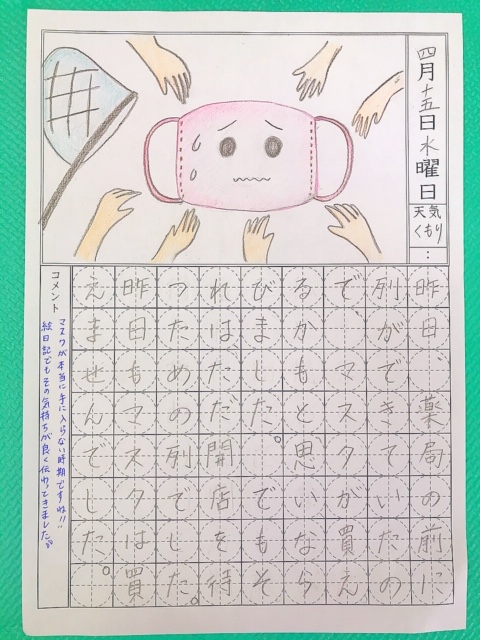 四月十五日水曜日
天気
くもり
昨日、薬局の前に
列ができていたの
で、マスクが買え
るかもと思いなら
びました。でもそ
れはただ開店を待
つための列でした。
昨日もマスクは買
えませんでした。
コメント
マスクが本当に手に入らない時期ですね!!
絵日記でもその気持ちが良く伝わってきました。